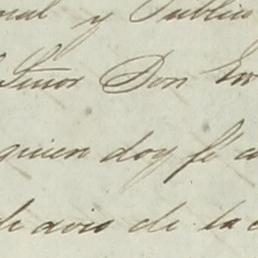 y Publico
Señor Don
quien doy fé
de avio de la